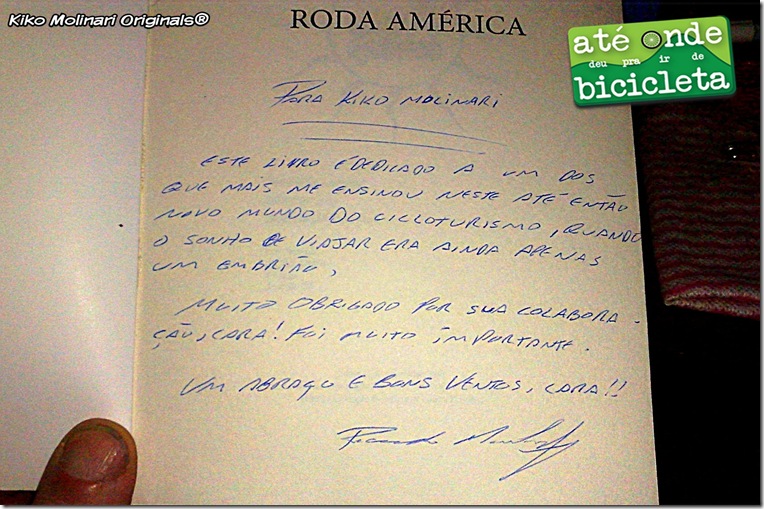 Kiko Molinari Originals®
RODA AMÉRICA
até onde
deu pra ir de
bicicleta
PARA KIKO MOLINARI
ESTE LIVRO É DEDICADO A UM DOS
QUE MAIS ME ENSINOU NESTE ATÉ ENTÃO
NOVO MUNDO DO CICLOTURISMO, QUANDO
O SONHO DE VIAJAR ERA AINDA APENAS
UM EMBRIÃO,
MUITO OBRIGADO POR SUA COLABORA-
ÇÃO, CARA! FOI MUITO IMPORTANTE.
UM ABRAÇO E BONS VENTOS, CARA!!